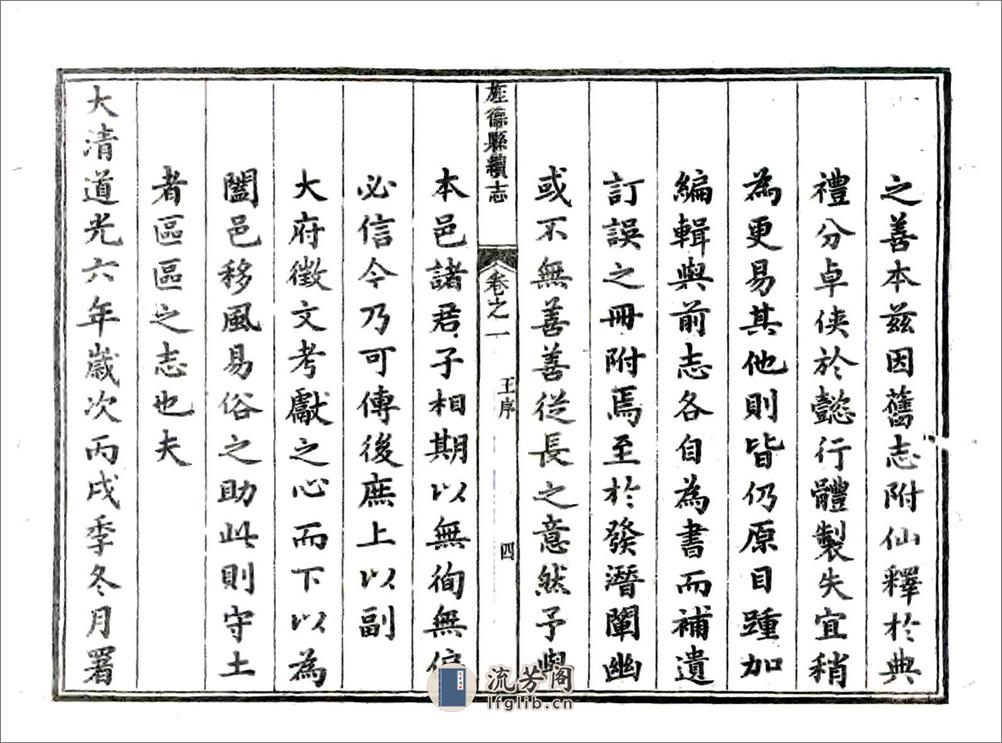 之善本茲因舊志附仙釋於典
禮分卓俠於懿行體製失宜稍
為更易其他則皆仍原目踵加
編輯與前志各自為書而補遺
訂誤之冊附焉至於發潛闡幽
或不無善善從長之意然予與
旌德縣續志
卷之一
王序
四
本邑諸君子相期以無徇無偏
必信今乃可傳後庶上以副
大府徵文考獻之心而下以為
闔邑移風易俗之助此則守土
者區區之志也夫
大清道光六年歲次丙戌季冬月署
流芳阁
lfglib.cn